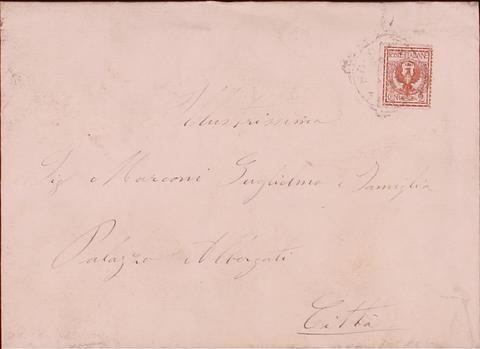 POSTE ITALIANE
Illustrissima
Sig. Marconi Guglielmo e Famiglia
Palazzo Albergati
Città